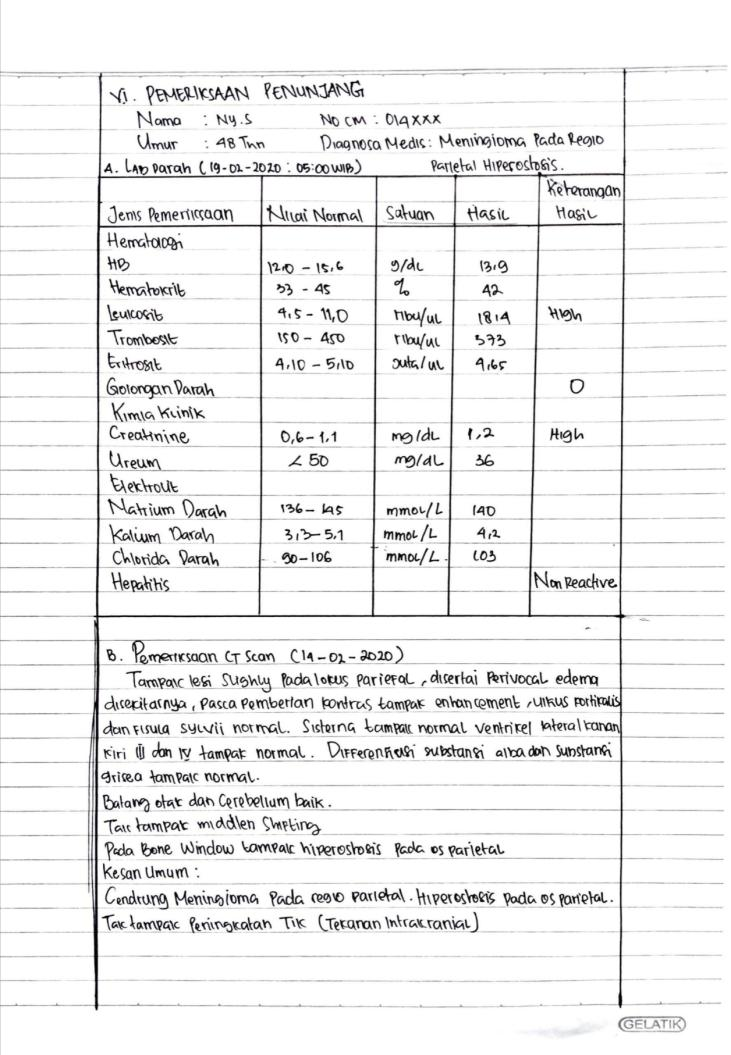 VI. PEMERIKSAAN PENUNJANG
Nama : Ny.S No CM : 014XXX
Umur : 48 Thn Diagnosa Medis: Meningioma Pada Regio
A. LAB Darah (19-02-2020 : 05:00 WIB) Parietal Hiperostosis.
Jenis Pemeriksaan Nilai Normal Satuan Hasil Keterangan Hasil
Hematologi
HB 12,0 - 15,6 g/dL 13,9
Hematokrit 33 - 45 % 42
Leukosit 4,5 - 11,0 ribu/uL 18,4 High
Trombosit 150 - 450 ribu/uL 373
Eritrosit 4,10 - 5,10 juta/uL 4,65
Golongan Darah O
Kimia Klinik
Creatinine 0,6 - 1,1 mg/dL 1,2 High
Ureum < 50 mg/dL 36
Elektrolit
Natrium Darah 136 - 145 mmol/L 140
Kalium Darah 3,3 - 5,1 mmol/L 4,2
Chlorida Darah 90-106 mmol/L 103
Hepatitis Non Reactive
B. Pemeriksaan CT Scan (19-02-2020)
Tampak lesi Sughly Pada lokus parietal, disertai Perivocal edema
disekitarnya, Pasca Pemberian kontras tampak enhancement, Ulkus kortikalis
dan Fisula sylvii normal. Sisterna tampak normal ventrikel lateral kanan
kiri III dan IV tampak normal. Differenfiasi substansi alba dan substansi
grisea tampak normal.
Batang otak dan Cerebellum baik.
Tak tampak middlen Shifting
Pada Bone Window tampak hiperostosis Pada os parietal
Kesan Umum :
Cendrung Meningioma Pada regio parietal. Hiperostosis Pada os Parietal.
Tak tampak Peningkatan TIK (Tekanan Intrakranial)
GELATIK